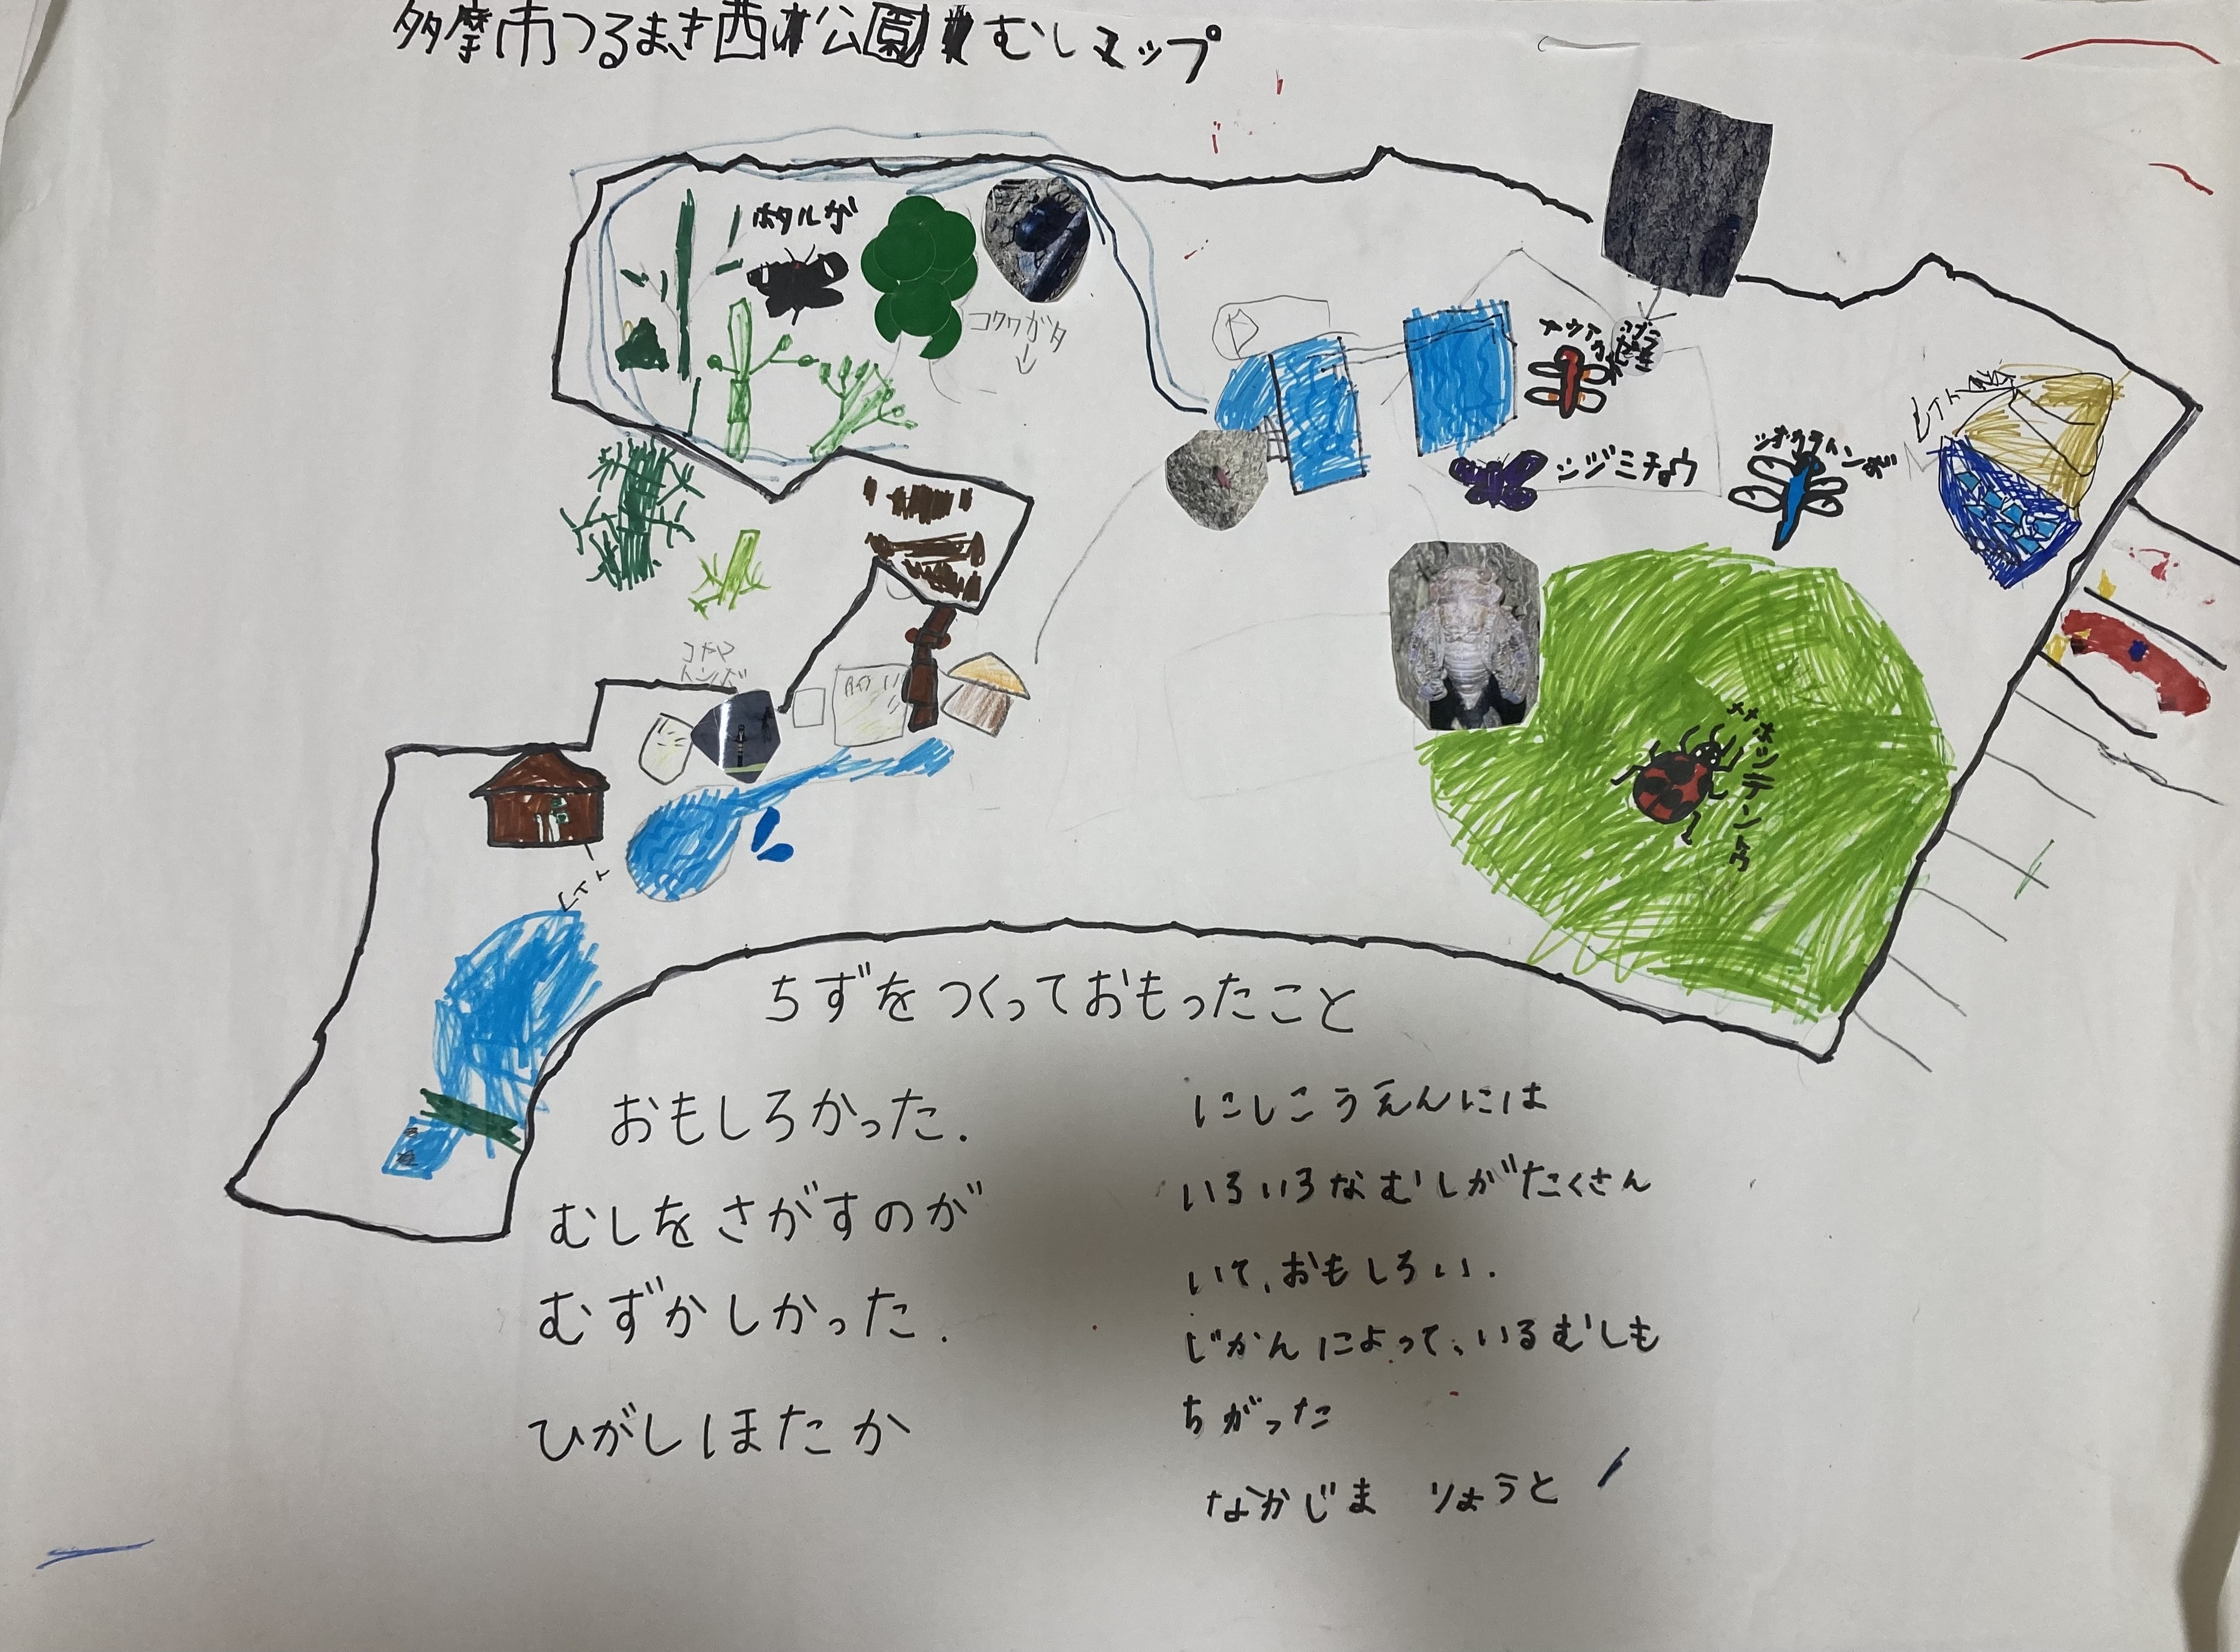 多摩市つるまき西公園むしマップ
ホタルガ
コクワガタ
シジミチョウ
シオカラトンボ
トイレ
ナナホシテントウ
コヤマ
トンボ
トイレ
ちずをつくっておもったこと
おもしろかった.
むしをさがすのが
むずかしかった.
ひがしほたか
にしこうえんには
いろいろなむしがたくさん
いて、おもしろい.
じかんによって、いるむしも
ちがった
なかじま りょうと